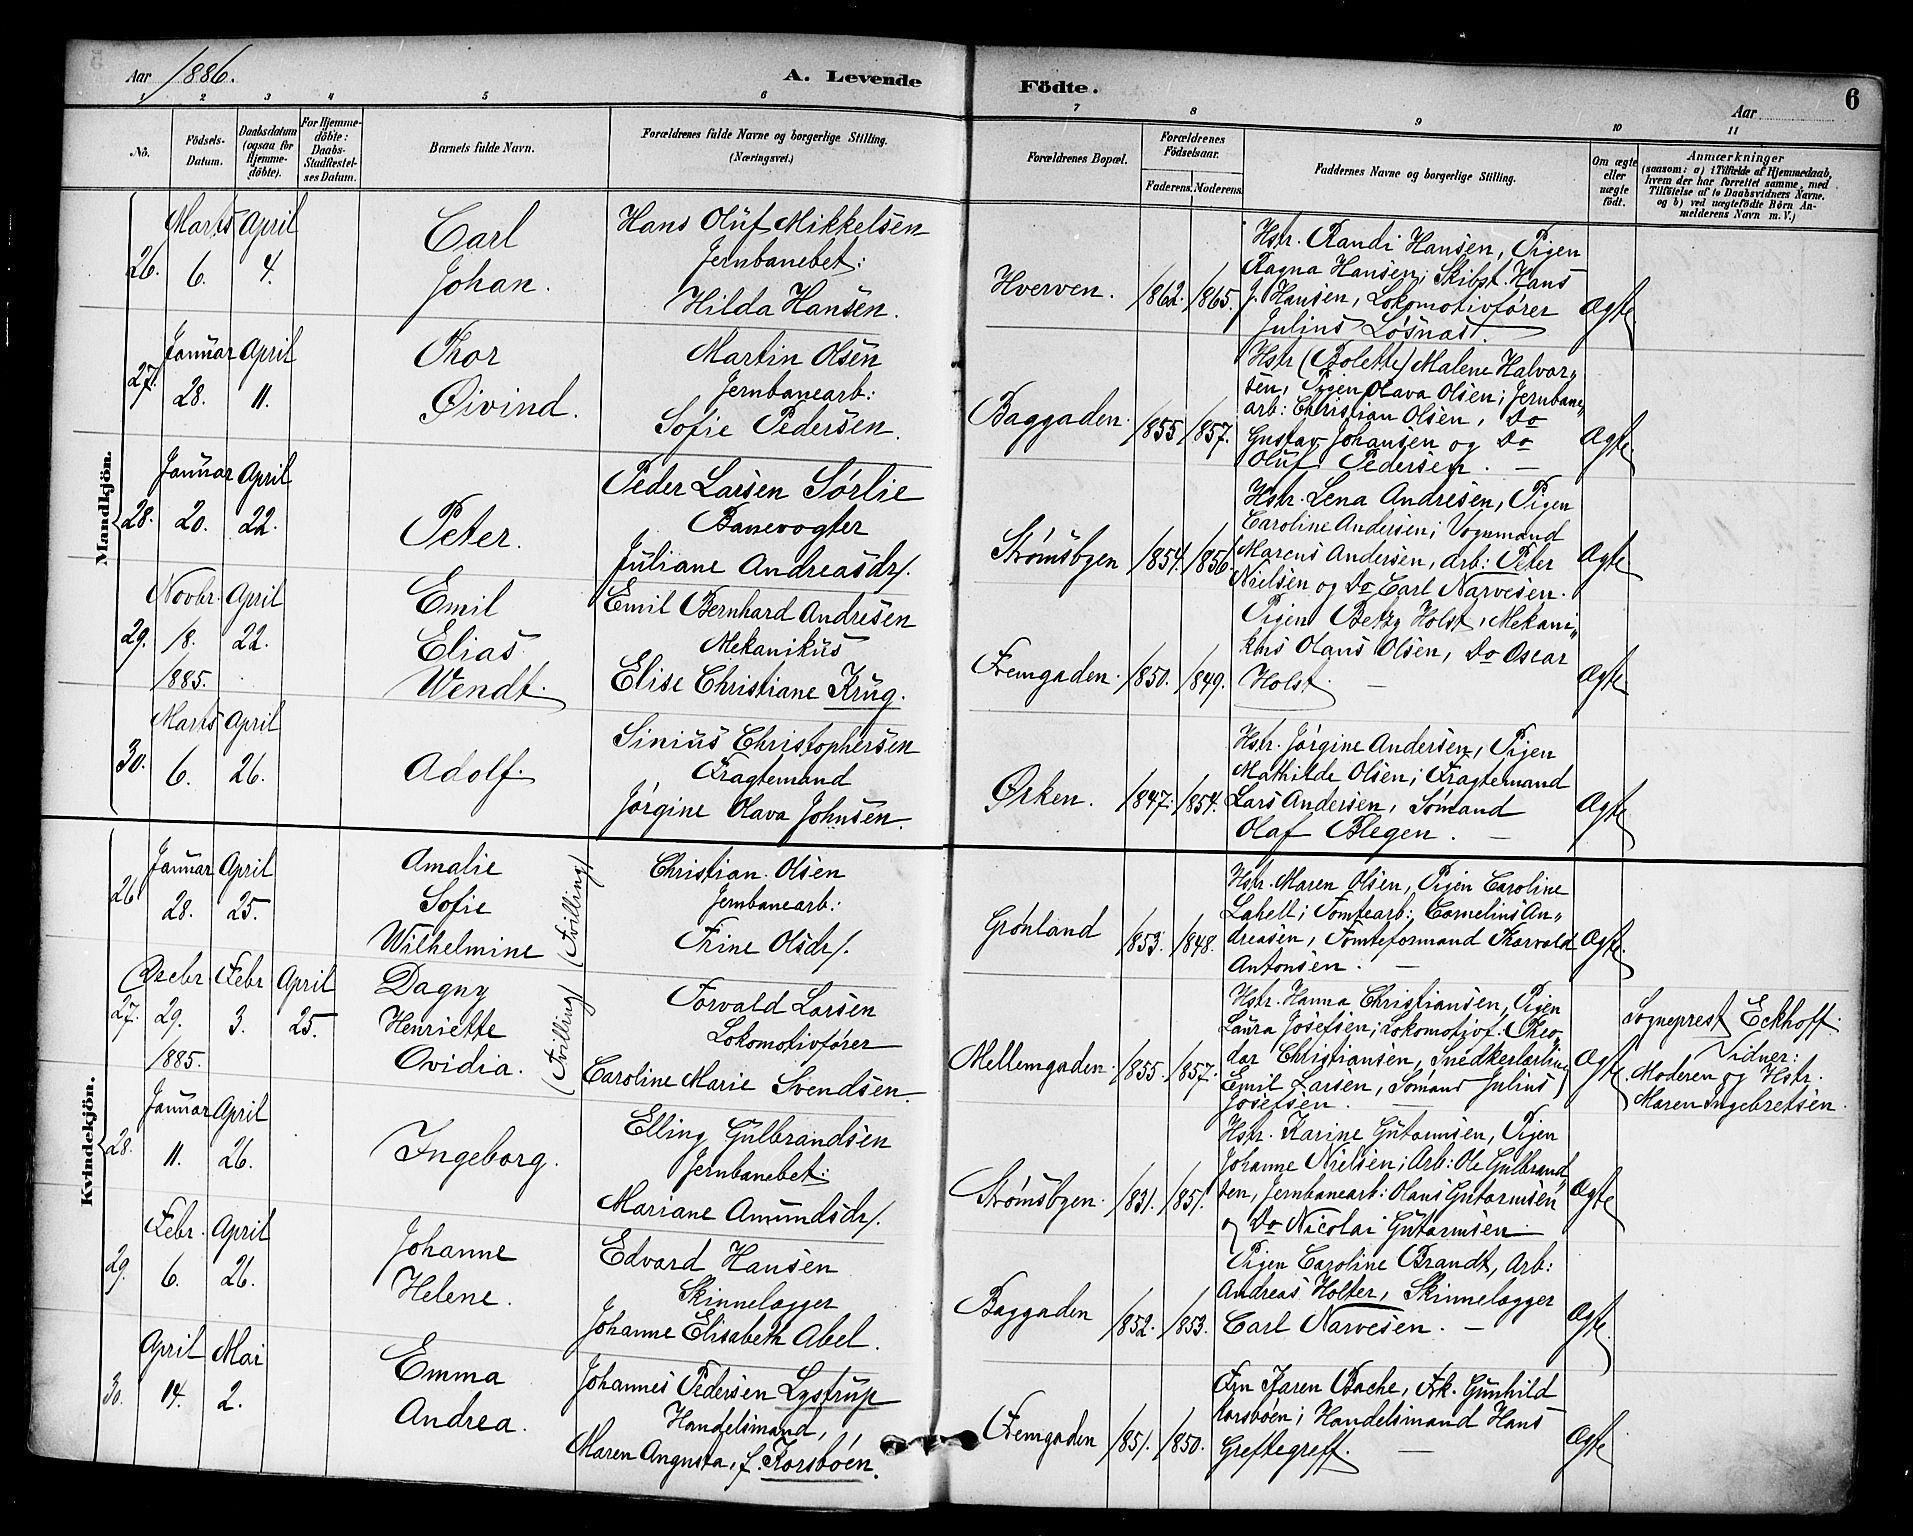 Aar 1886.
A. Levende Födte.
Aar
6
1 2 3 4 5 6 7 8 9 10 11
No.
Födsels-
Datum.
Daabsdatum
(ogsaa for
Hjemme-
döbte).
For Hjemme-
döbte:
Daabs-
Stadfæstel-
ses Datum.
Barnets fulde Navn.
Forældrenes fulde Navne og borgerlige Stilling.
(Næringsvei.)
Forældrenes Bopæl.
Forældrenes
Födselsaar.
Faderens. Moderens.
Faddernes Navne og borgerlige Stilling.
Om ægte
eller
uægte
födt.
Anmærkninger
(saasom: a) i Tilfælde af Hjemmedaab,
hvem der har forrettet samme, med
Tilföielse af to Daabsvidners Navne.
og b) ved uægtefödte Börn An-
melderens Navn m. V.)
Mandkjön.
26.
Marts
6.
April
4.
Carl
Johan.
Hans Oluf Mikkelsen
Jernbanebet:
Hilda Hansen.
Hverven.
1862. 1865.
Hstr. Randi Hansen, Pigen
Ragna Hansen; Skibst. Hans
J. Hansen, Lokomotivfører
Julius Løsnæst.
Ægte
27.
Januar
28.
April
11.
Thor
Øivind.
Martin Olsen
Jernbanearb:
Sofie Pedersen.
Baggaden.
1855 1857.
Hstr (Bolette) Malene Halvor„
sen, Pigen Olava Olsen; Jernbane„
arb: Christian Olsen, Do
Gustav Johansen og Do
Oluf Pedersen. —
Ægte.
28.
Januar
20.
April
22.
Peter.
Peder Larsen Sørlie
Banevogter
Juliane Andreasdr.
Strømsbyen
1854. 1856.
Hstr. Lena Andresen, Pigen
Caroline Andersen; Vognmand
Marens Andersen, Arb: Peter
Nielsen og Do Carl Narvesen.
Ægte.
29.
Novbr.
18.
1885.
April
22.
Emil
Elias
Wendt.
Emil Bernhard Andresen
Mekanikus
Elise Christiane Krug.
Fremgaden.
1850. 1849.
Pigen Betzy Holst, Mekani„
kus Olaus Olsen, Do Oscar
Holst. —
Ægte.
30.
Marts
6.
April
26.
Adolf.
Sinius Christophersen
Fragtemand
Jørgine Olava Johnsen.
Ørken.
1847. 1854.
Hstr. Jørgine Andersen, Pigen
Mathilde Olsen; Fragtemand
Lars Andersen, Sømand
Olaf Blegen. —
Ægte
Kvindekjön.
26
Januar
28.
April
25.
Amalie
Sofie
Wilhelmine
(Tvilling)
Christian Olsen
Jernbanearb:
Trine Olsdr.
Grønland
1853. 1848.
Hstr. Maren Olsen, Pigen Caroline
Lahell; Tomtearb: Cornelius An„
dreasen, Tomteformand Thorvald
Antonsen. —
Ægte.
27.
Decbr
29.
1885.
Febr
3.
April
25.
Dagny
Henriette
Ovidia.
(Tvilling)
Torvald Larsen
Lokomotivfører
Caroline Marie Svendsen.
Mellemgaden.
1855. 1857.
Hstr. Hanna Christiansen, Pigen
Laura Josefsen; Lokomotivf. Theo„
dor Christiansen, Snedkerlærling
Emil Larsen, Sømand Julius
Josefsen. —
Ægte
Sogneprest Eckhoff.
Vidner:
Moderen og Hstr.
Maren Ingebretsen.
28.
Januar
11.
April
26.
Ingeborg.
Elling Gulbrandsen
Jernbanebet:
Mariane Amundsdr.
Strømsbyen.
1831. 1851.
Hstr. Karine Gutormsen, Pigen
Johanne Nielsen; Arb: Ole Gulbrand„
sen, Jernbanearb: Olaus Gutormsen
og Do Nicolai Gutormsen.
Ægte
29.
Febr.
6.
April
26.
Johanne
Helene.
Edvard Hansen
Skinnelægger
Johanne Elisabeth Abel.
Baggaden
1852. 1853.
Pigen Caroline Brandt, Arb:
Andreas Holter, Skinnelægger
Carl Narvesen. —
Ægte.
30.
April
14.
Mai
2.
Emma
Andrea.
Johannes Pedersen Lystrup
Handelsmand,
Maren Augusta, f. Korsbøen.
Fremgaden
1851. 1850.
Fru Karen Bache, Frk. Gunhild
Korsbøen; Handelsmand Hans
Greftegreff. —
Ægte